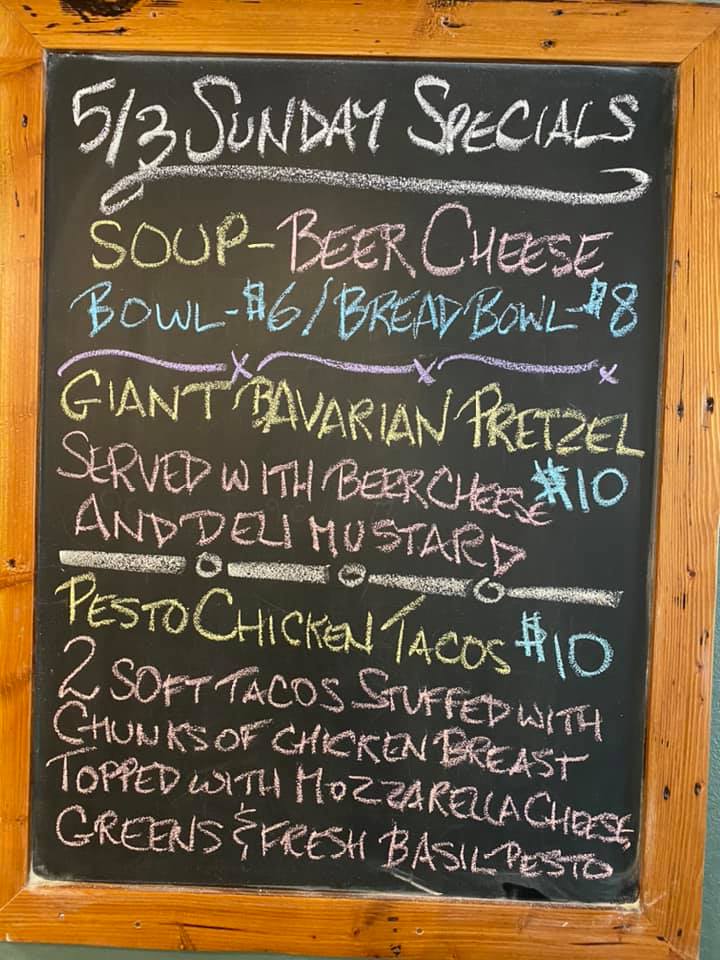 5/3 SUNDAY SPECIALS
SOUP-BEER CHEESE
BOWL-$6/BREAD BOWL-$8
GIANT BAVARIAN PRETZEL
SERVED WITH BEER CHEESE $10
AND DELI MUSTARD
PESTO CHICKEN TACOS $10
2 SOFT TACOS STUFFED WITH
CHUNKS OF CHICKEN BREAST
TOPPED WITH MOZZARELLA CHEESE,
GREENS & FRESH BASIL PESTO